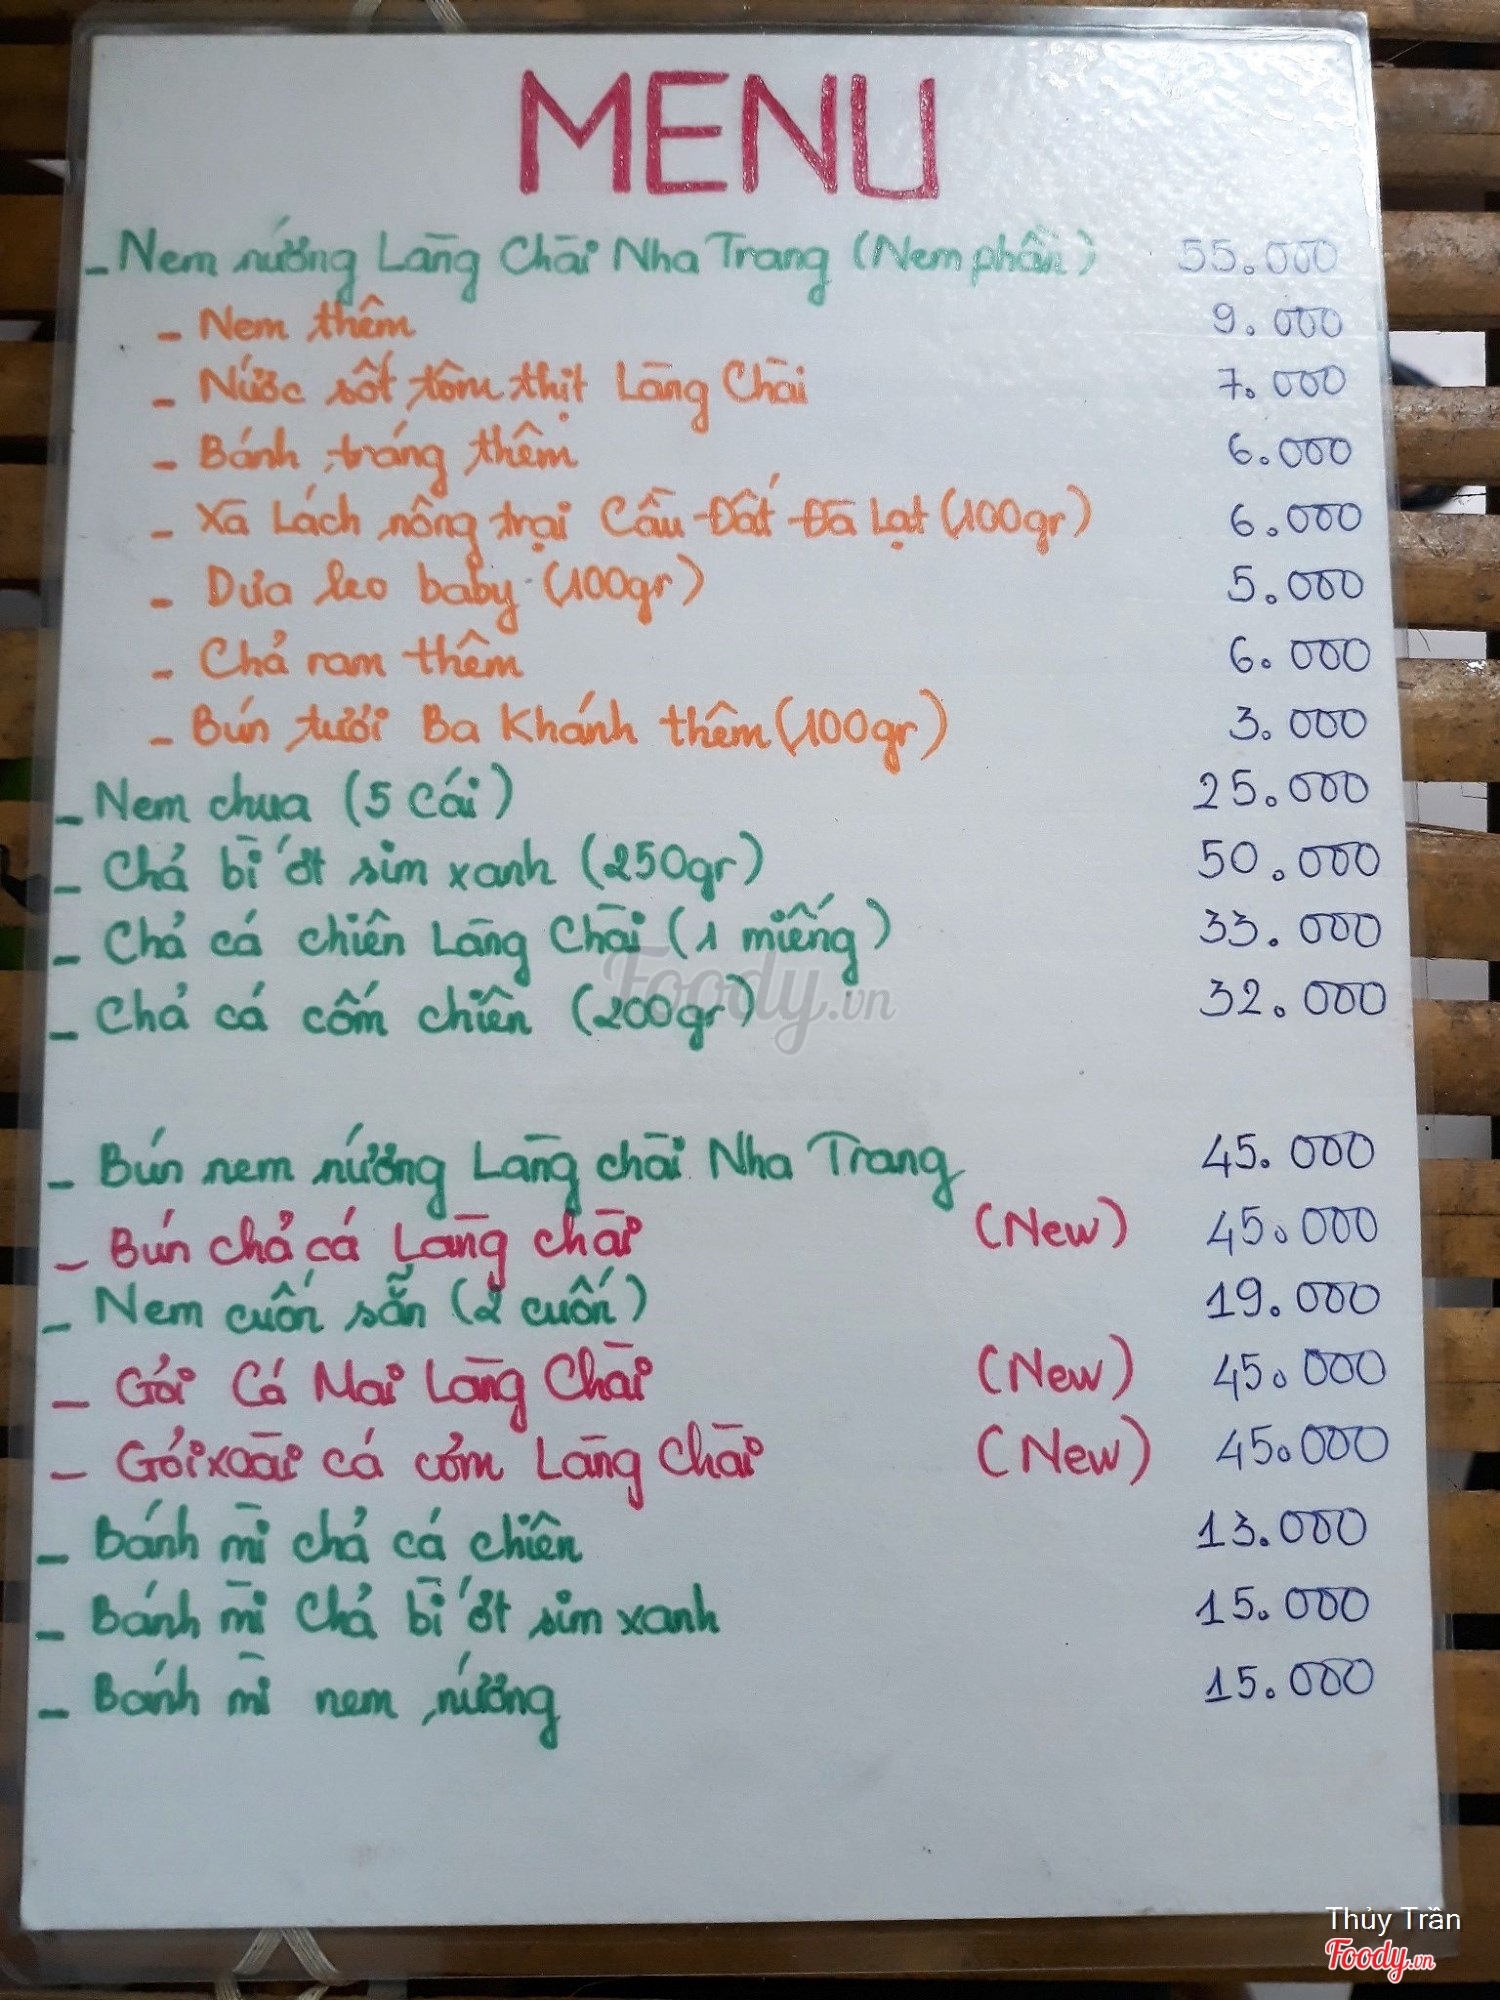 MENU
- Nem nướng Làng Chài Nha Trang (Nem phần) 55.000
- Nem thêm 9.000
- Nước sốt tôm thịt Làng Chài 7.000
- Bánh tráng thêm 6.000
- Xà Lách nông trại Cầu Đất - Đà Lạt (100gr) 6.000
- Dưa leo baby (100gr) 5.000
- Chả ram thêm 6.000
- Bún tươi Ba Khánh thêm (100gr) 3.000
- Nem chua (5 cái) 25.000
- Chả bì ớt sim xanh (250gr) 50.000
- Chả cá chiên Làng Chài (1 miếng) 33.000
- Chả cá cốm chiên (200gr) 32.000
Foody.vn
- Bún nem nướng Làng chài Nha Trang 45.000
- Bún chả cá Làng chài (New) 45.000
- Nem cuốn sẵn (2 cuốn) 19.000
- Gỏi Cá Mai Làng Chài (New) 45.000
- Gỏi xoài cá cơm Làng Chài (New) 45.000
- Bánh mì chả cá chiên 13.000
- Bánh mì Chả bì ớt sim xanh 15.000
- Bánh mì nem nướng 15.000
Thủy Trần
Foody.vn